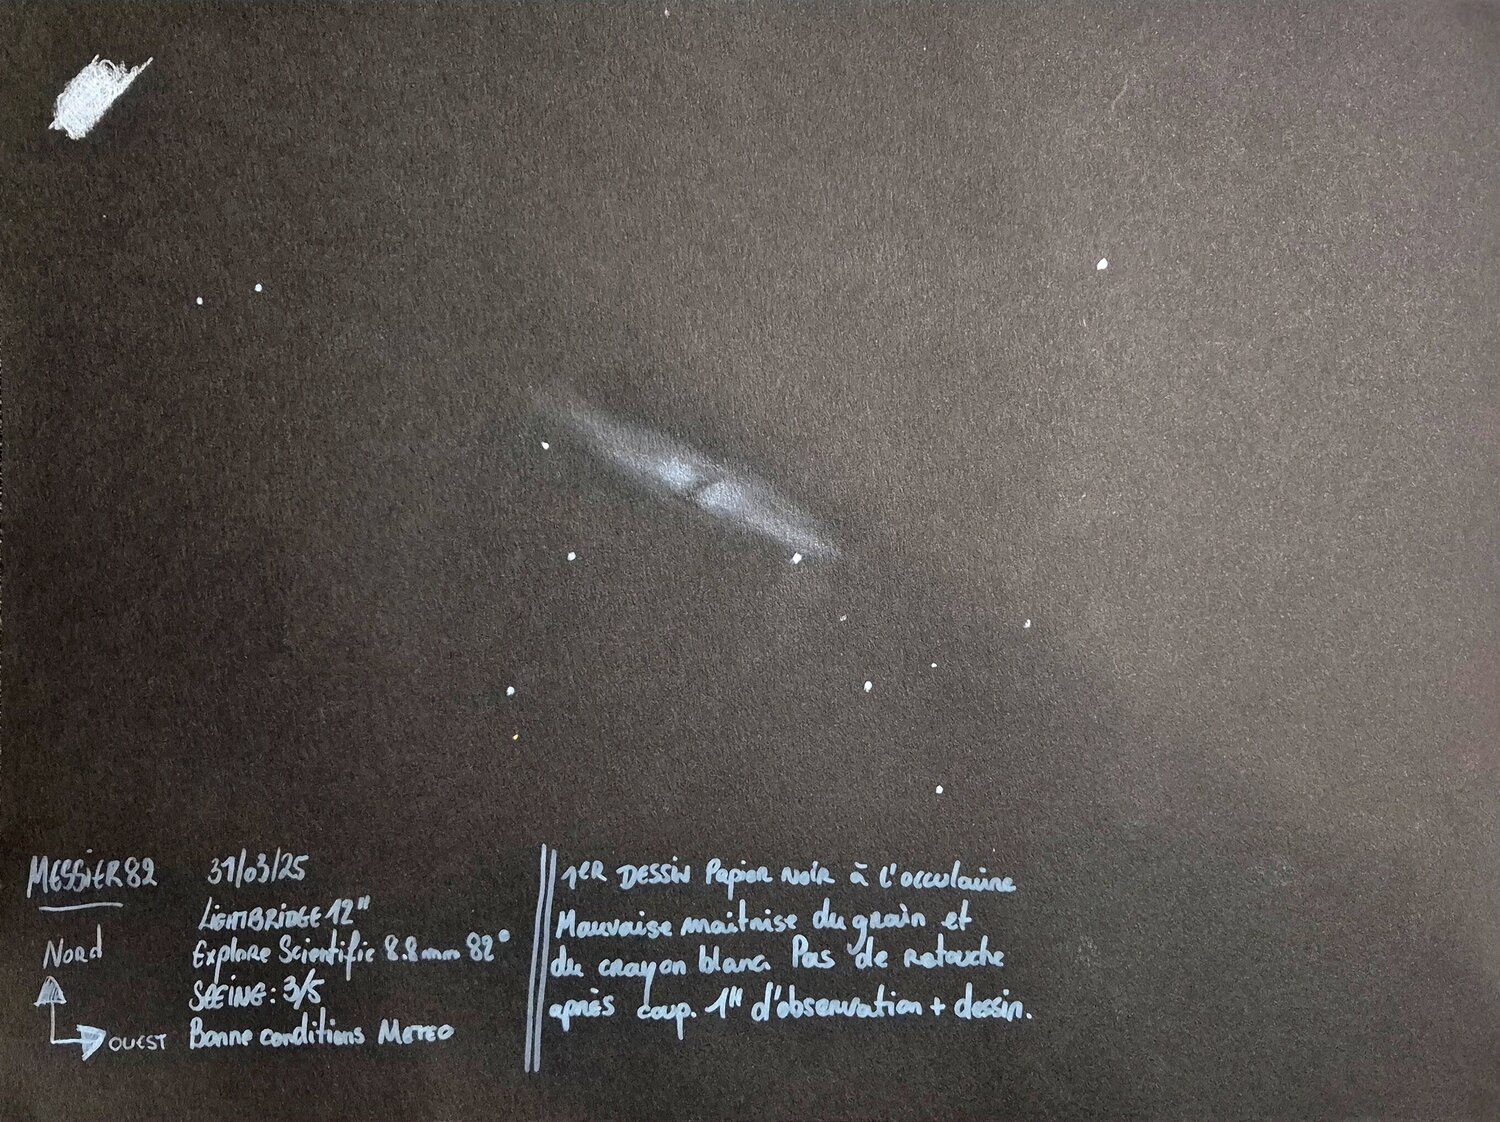 MESSIER 82
Nord
OUEST
31/03/25
LIGHTBRIDGE 12"
Explore Scientific 8.8mm 82°
SEEING: 3/5
Bonne conditions METEO
1ER DESSIN Papier noir à l'occulaire
Mauvaise maitrise du grain et
du crayon blanc. Pas de retouche
après coup. 1H d'observation + dessin.